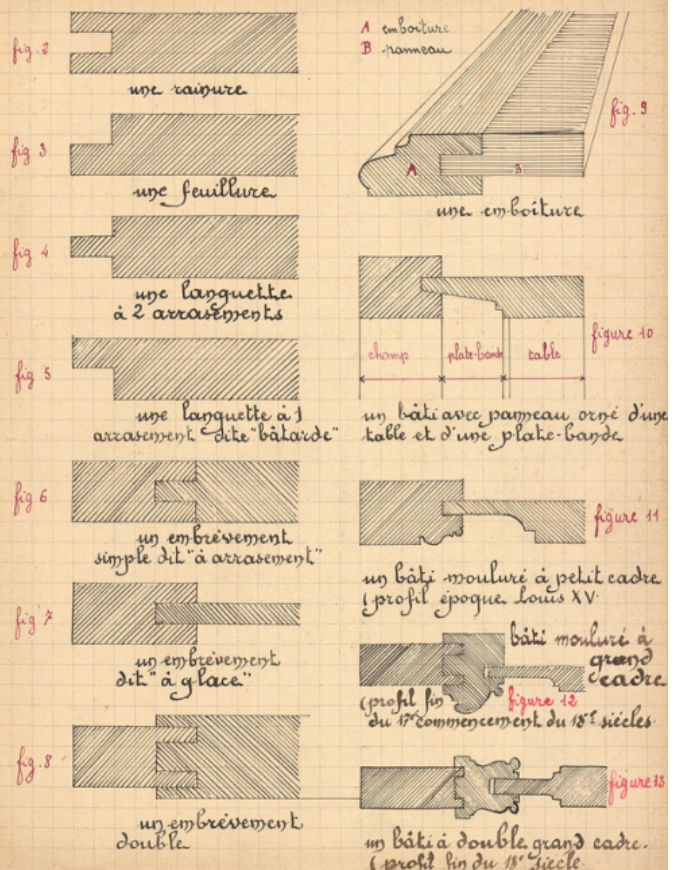 fig. 2
une rainure
fig 3
une feuillure
fig 4
une languette
à 2 arrasements
fig 5
une languette à 1
arrasement dite "bâtarde"
fig 6
un embrèvement
simple dit "à arrasement"
fig 7
un embrèvement
dit "à glace"
fig. 8
un embrèvement
double
A emboiture
B panneau
fig. 9
A
B
une emboiture
figure 10
champ
plate-bande
table
un bâti avec panneau orné d'une
table et d'une plate-bande
figure 11
un bâti mouluré à petit cadre
(profil époque Louis XV
bâti mouluré à
grand
cadre
figure 12
(profil fin
du 17e commencement du 18e siècles
figure 13
un bâti à double grand cadre.
(profil fin du 18e siecle